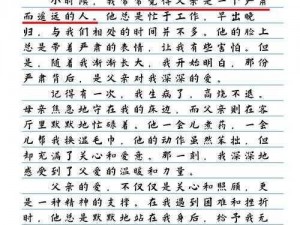 小时候，我常常觉得父亲是一个严肃
而遥远的人，他总是忙于工作，早出晚
归，与我们相处的时间并不多。他的脸上
总是带着严肃的表情，让我有些害怕。但
是，随着我渐渐长大，我开始明白，那份
严肃背后，是父亲对我深深的爱。
记得有一次，我生病了，高烧不退。
母亲焦急地守在我的床边，而父亲则在客
厅里默默地忙碌着。他一会儿煮药，一会
儿帮我换温毛巾，他的动作虽然笨拙，但
却充满了关心和爱意。那一刻，我深深地
感受到了父爱的温暖和力量。
父亲的爱，不仅仅是关心和照顾，更
是一种精神的支撑。在我遇到困难和挫折
时，他总是默默地站在我身后，给予我无